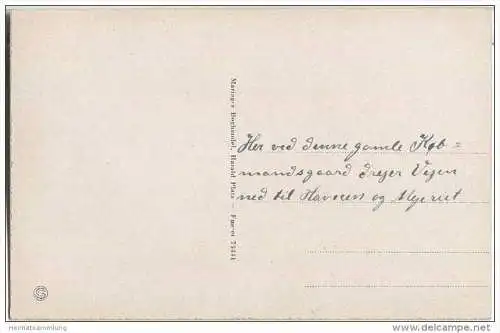 Mariager Boghandel, Harald Plats — Eneret 73444
Her ved denne gamle Køb=
mandsgaard drejer Vejen
ned til Havnen og Mejeriet
Heimatsammlung
www.delcampe.net